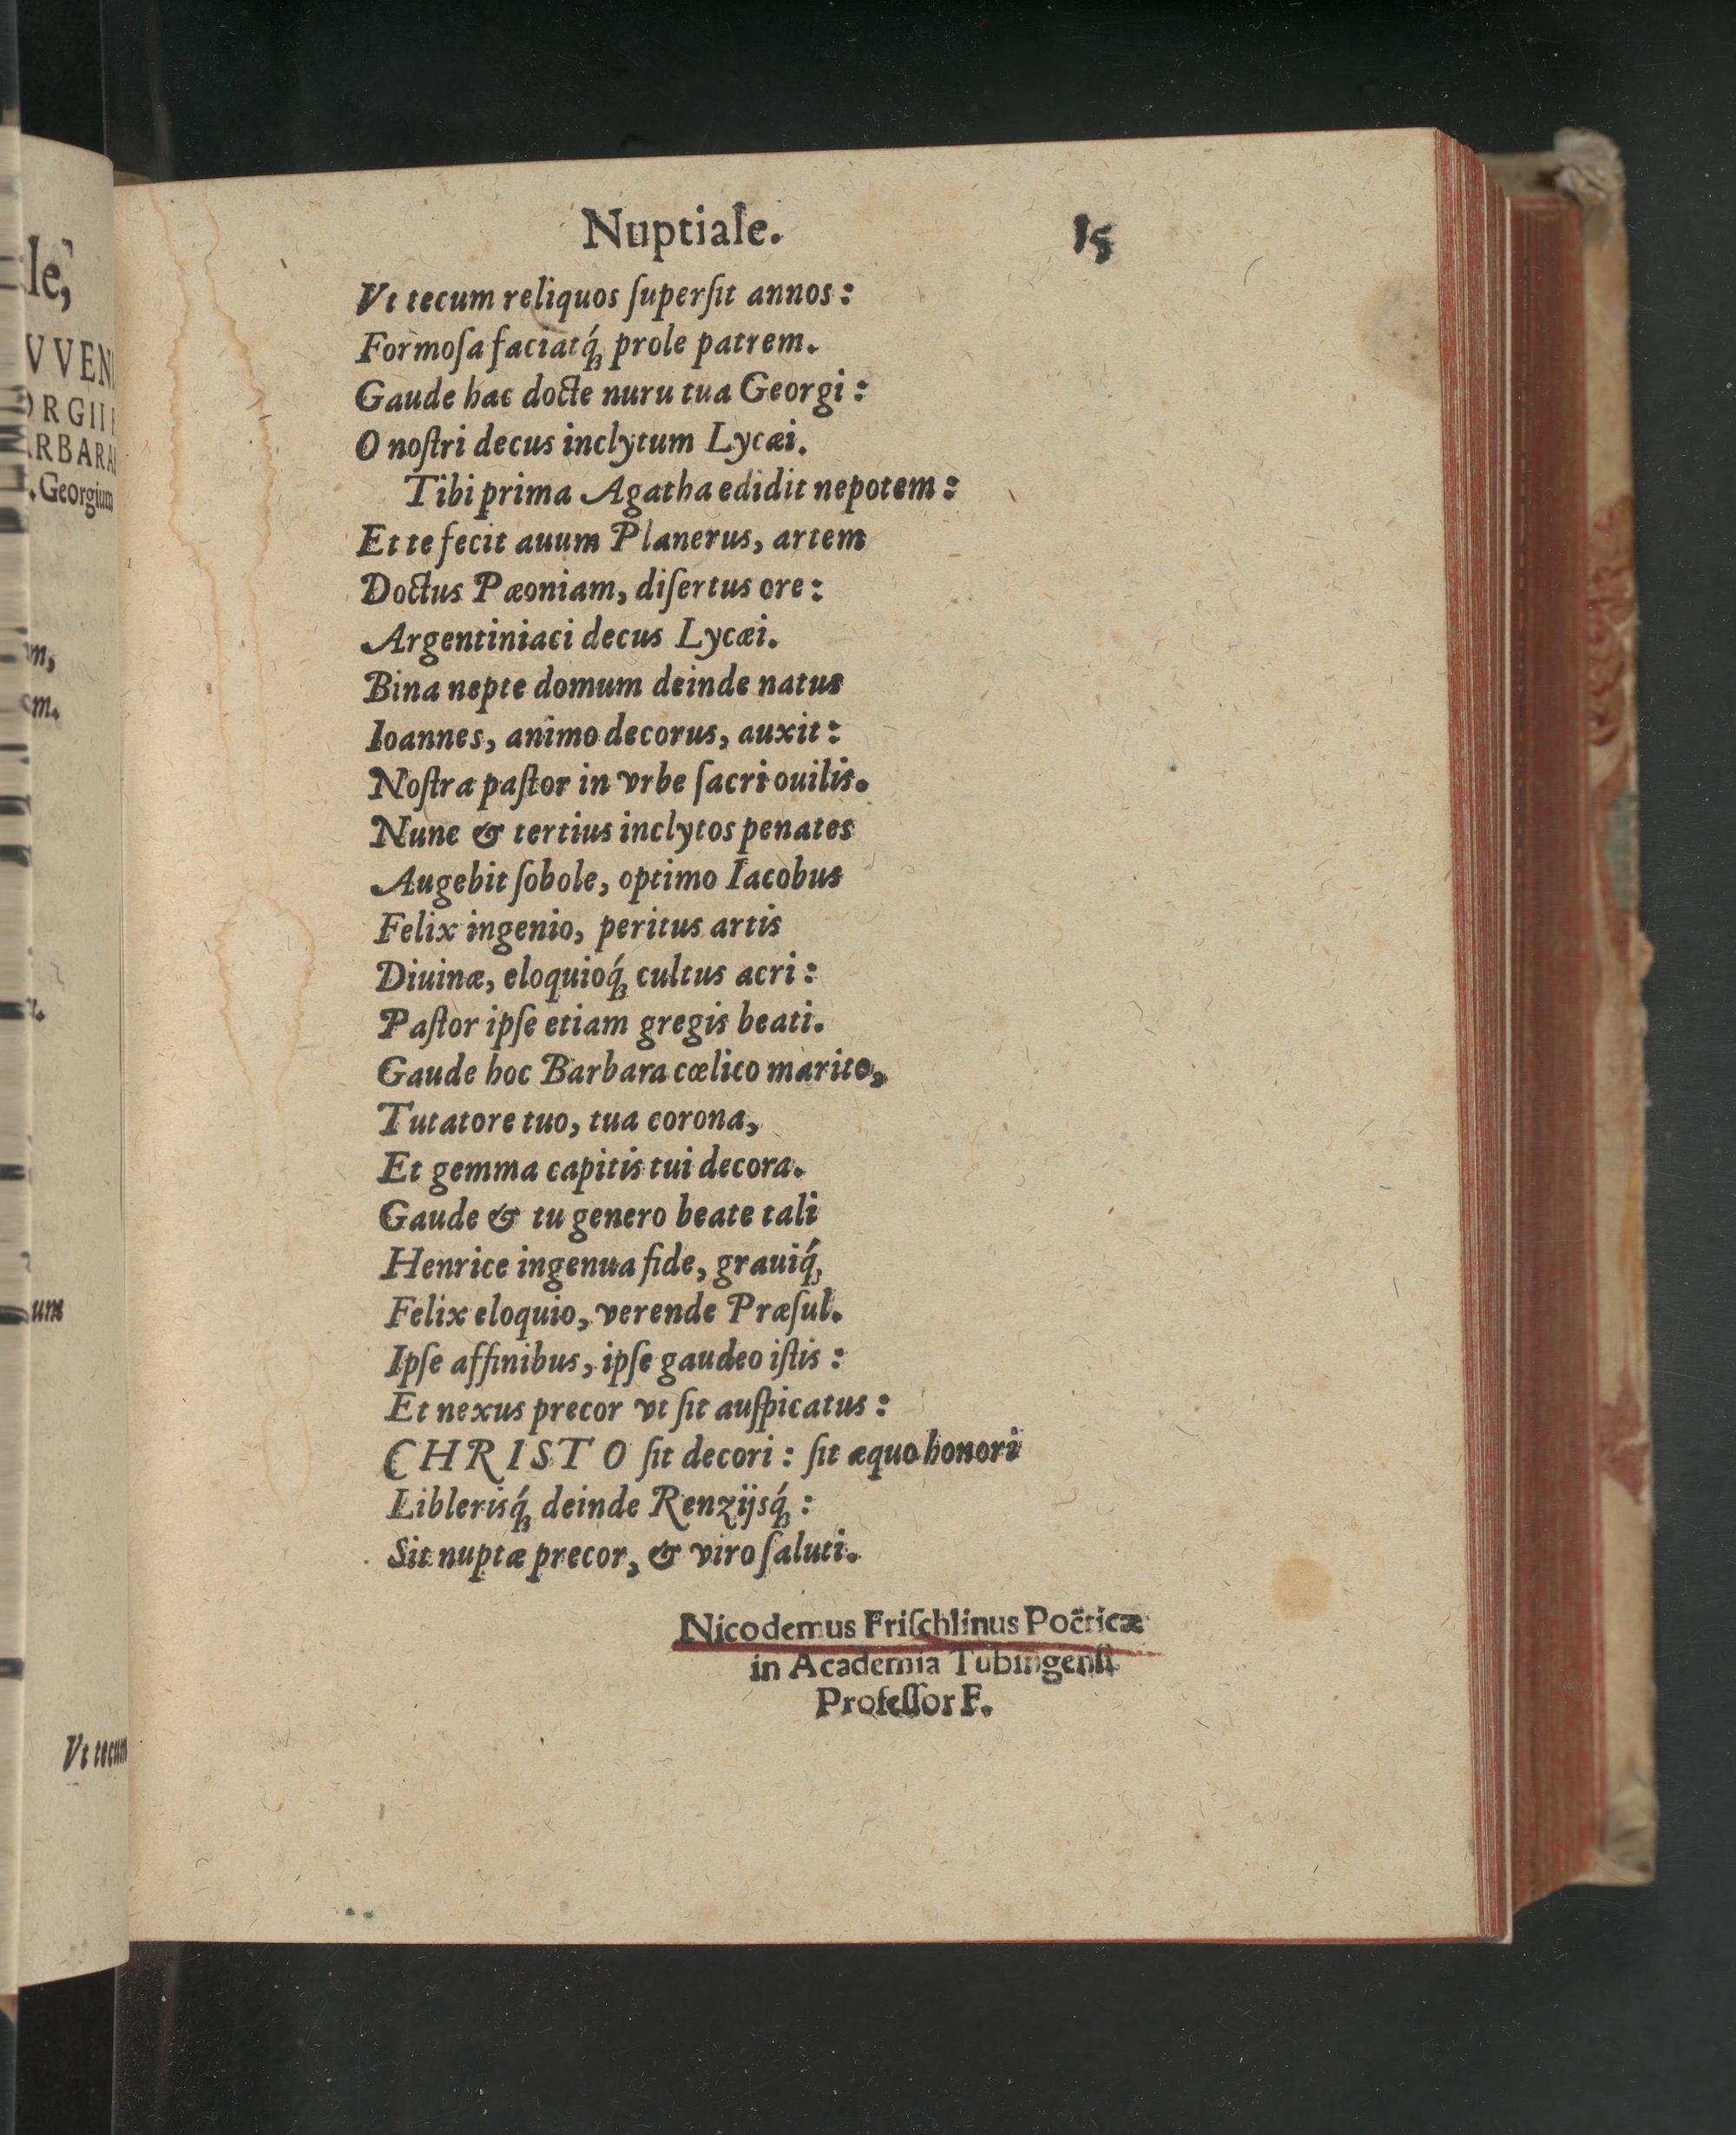 Nuptiale. 15
Vt tecum reliquos ſuperſit annos:
Formoſa faciatq́ꝫ prole patrem.
Gaude hac docte nuru tua Georgi:
O noſtri decus inclytum Lycæi.
Tibi prima Agatha edidit nepotem:
Et te fecit auum Planerus, artem
Doctus Pæoniam, diſertus ore:
Argentiniaci decus Lycæi.
Bina nepte domum deinde natus
Ioannes, animo decorus, auxit:
Noſtra paſtor in vrbe ſacri ouilis.
Nunc & tertius inclytos penates
Augebit ſobole, optimo Iacobus
Felix ingenio, peritus artis
Diuinæ, eloquioq́ꝫ cultus acri:
Paſtor ipſe etiam gregis beati.
Gaude hoc Barbara cœlico marito,
Tutatore tuo, tua corona,
Et gemma capitis tui decora.
Gaude & tu genero beate tali
Henrice ingenua fide, grauiq́ꝫ
Felix eloquio, verende Præſul.
Ipſe affinibus, ipſe gaudeo iſtis:
Et nexus precor vt ſit auſpicatus:
CHRISTO ſit decori: ſit æquo honori
Liblerisq́ꝫ deinde Renzijsq́ꝫ:
Sit nuptæ precor, & viro ſaluti.
Nicodemus Friſchlinus Poëticæ
in Academia Tubingenſi
Profeſſor F.
le,
VVEN
ORGII
ARBARA
. Georgium
m,
m.
um
Vt tecum